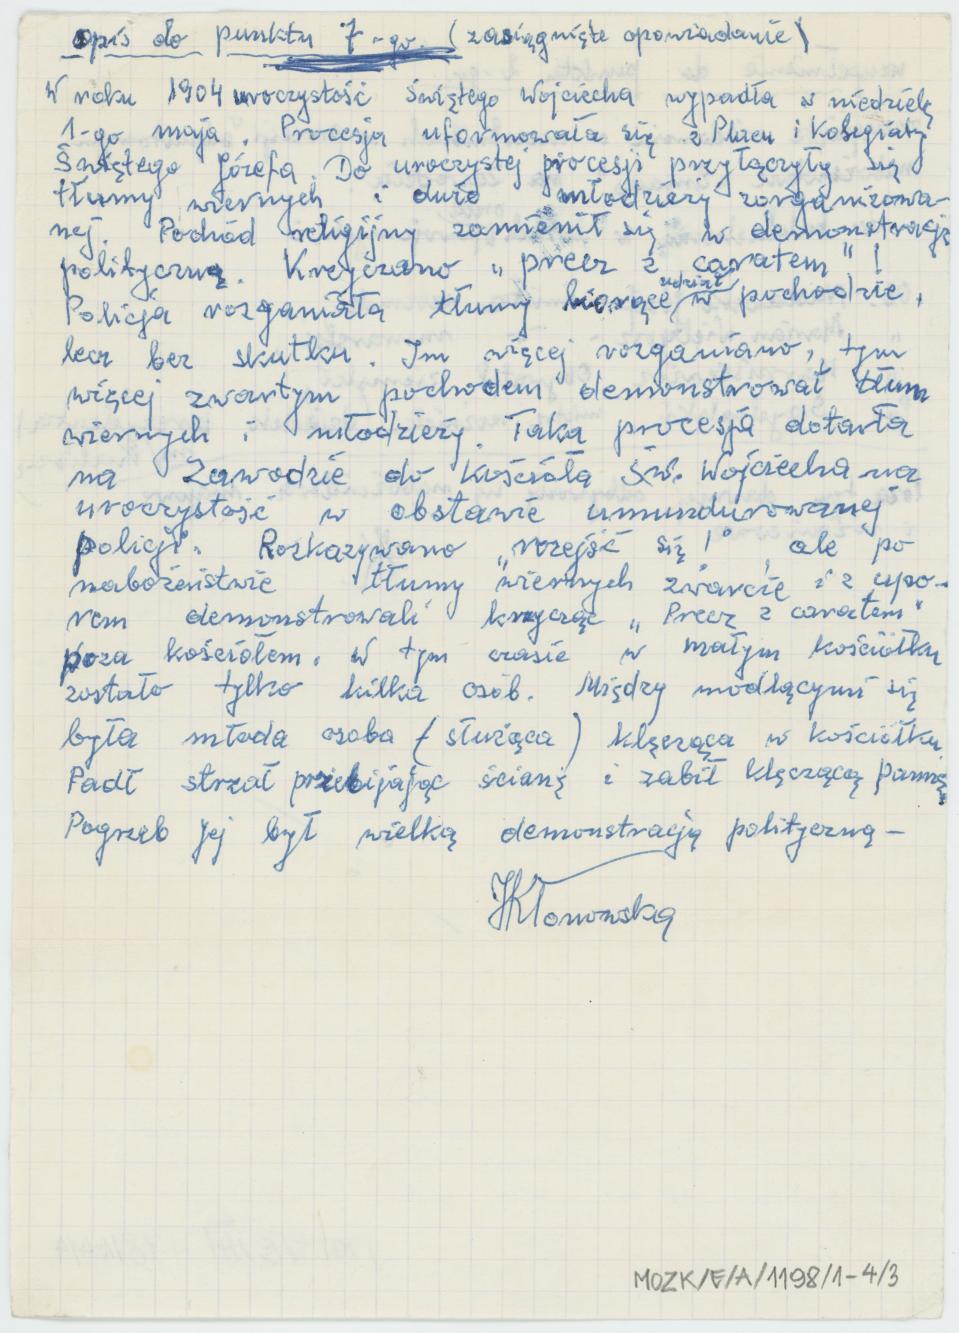 opis do punktu 7-go. (zasiągnięte opowiadanie)
W roku 1904 uroczystość Świętego Wojciecha wypadła w niedzielę
1-go maja. Procesja uformowała się z Placu i Kolegiaty
Świętego Józefa. Do uroczystej procesji przyłączyły się
tłumy wiernych i dużo młodzieży zorganizowa-
nej. Pochód religijny zamienił się w demonstrację
polityczną. Krzyczano „precz z caratem"!
Policja rozganiała tłumy biorące udział w pochodzie,
lecz bez skutku. Im więcej rozganiano, tym
więcej zwartym pochodem demonstrował tłum
wiernych i młodzieży. Taka procesja dotarła
na Zawodzie do Kościoła Św. Wojciecha na
uroczystość w obstawie umundurowanej
policji. Rozkazywano „rozejść się!", ale po
nabożeństwie tłumy wiernych zwarcie i z upo-
rem demonstrowali krzycząc „Precz z caratem"
poza kościołem. W tym czasie w małym kościółku
zostało tylko kilka osób. Między modlącymi się
była młoda osoba (służąca) klęcząca w kościółku
Padł strzał przebijając ścianę i zabił klęczącą panią.
Pogrzeb jej był wielką demonstracją polityczną –
HKłonowska
MOZK/E/A/1198/1-4/3